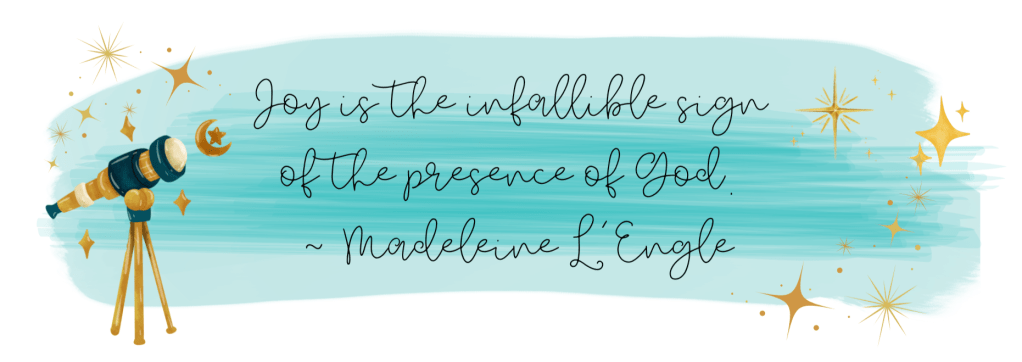 Joy is the infallible sign
of the presence of God.
~ Madeleine L'Engle